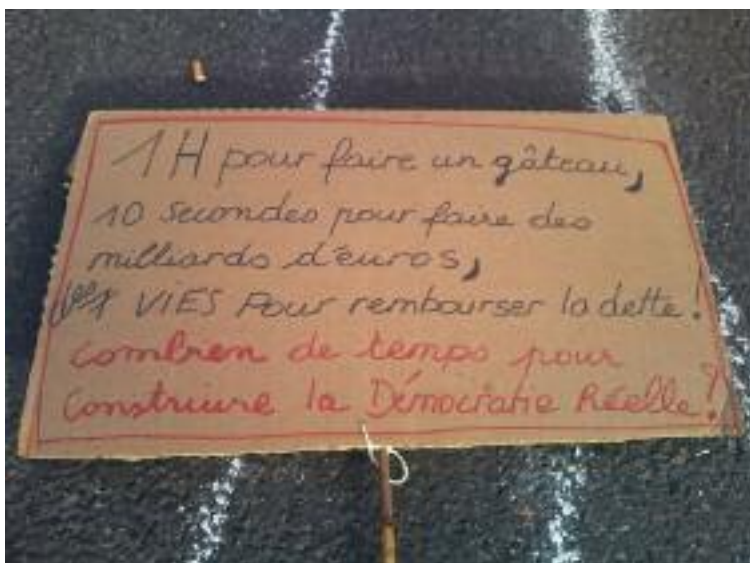 1H pour faire un gâteau,
10 secondes pour faire des
milliards d'euros,
VIES Pour rembourser la dette!
combien de temps pour
construire la Démocratie Réelle?!